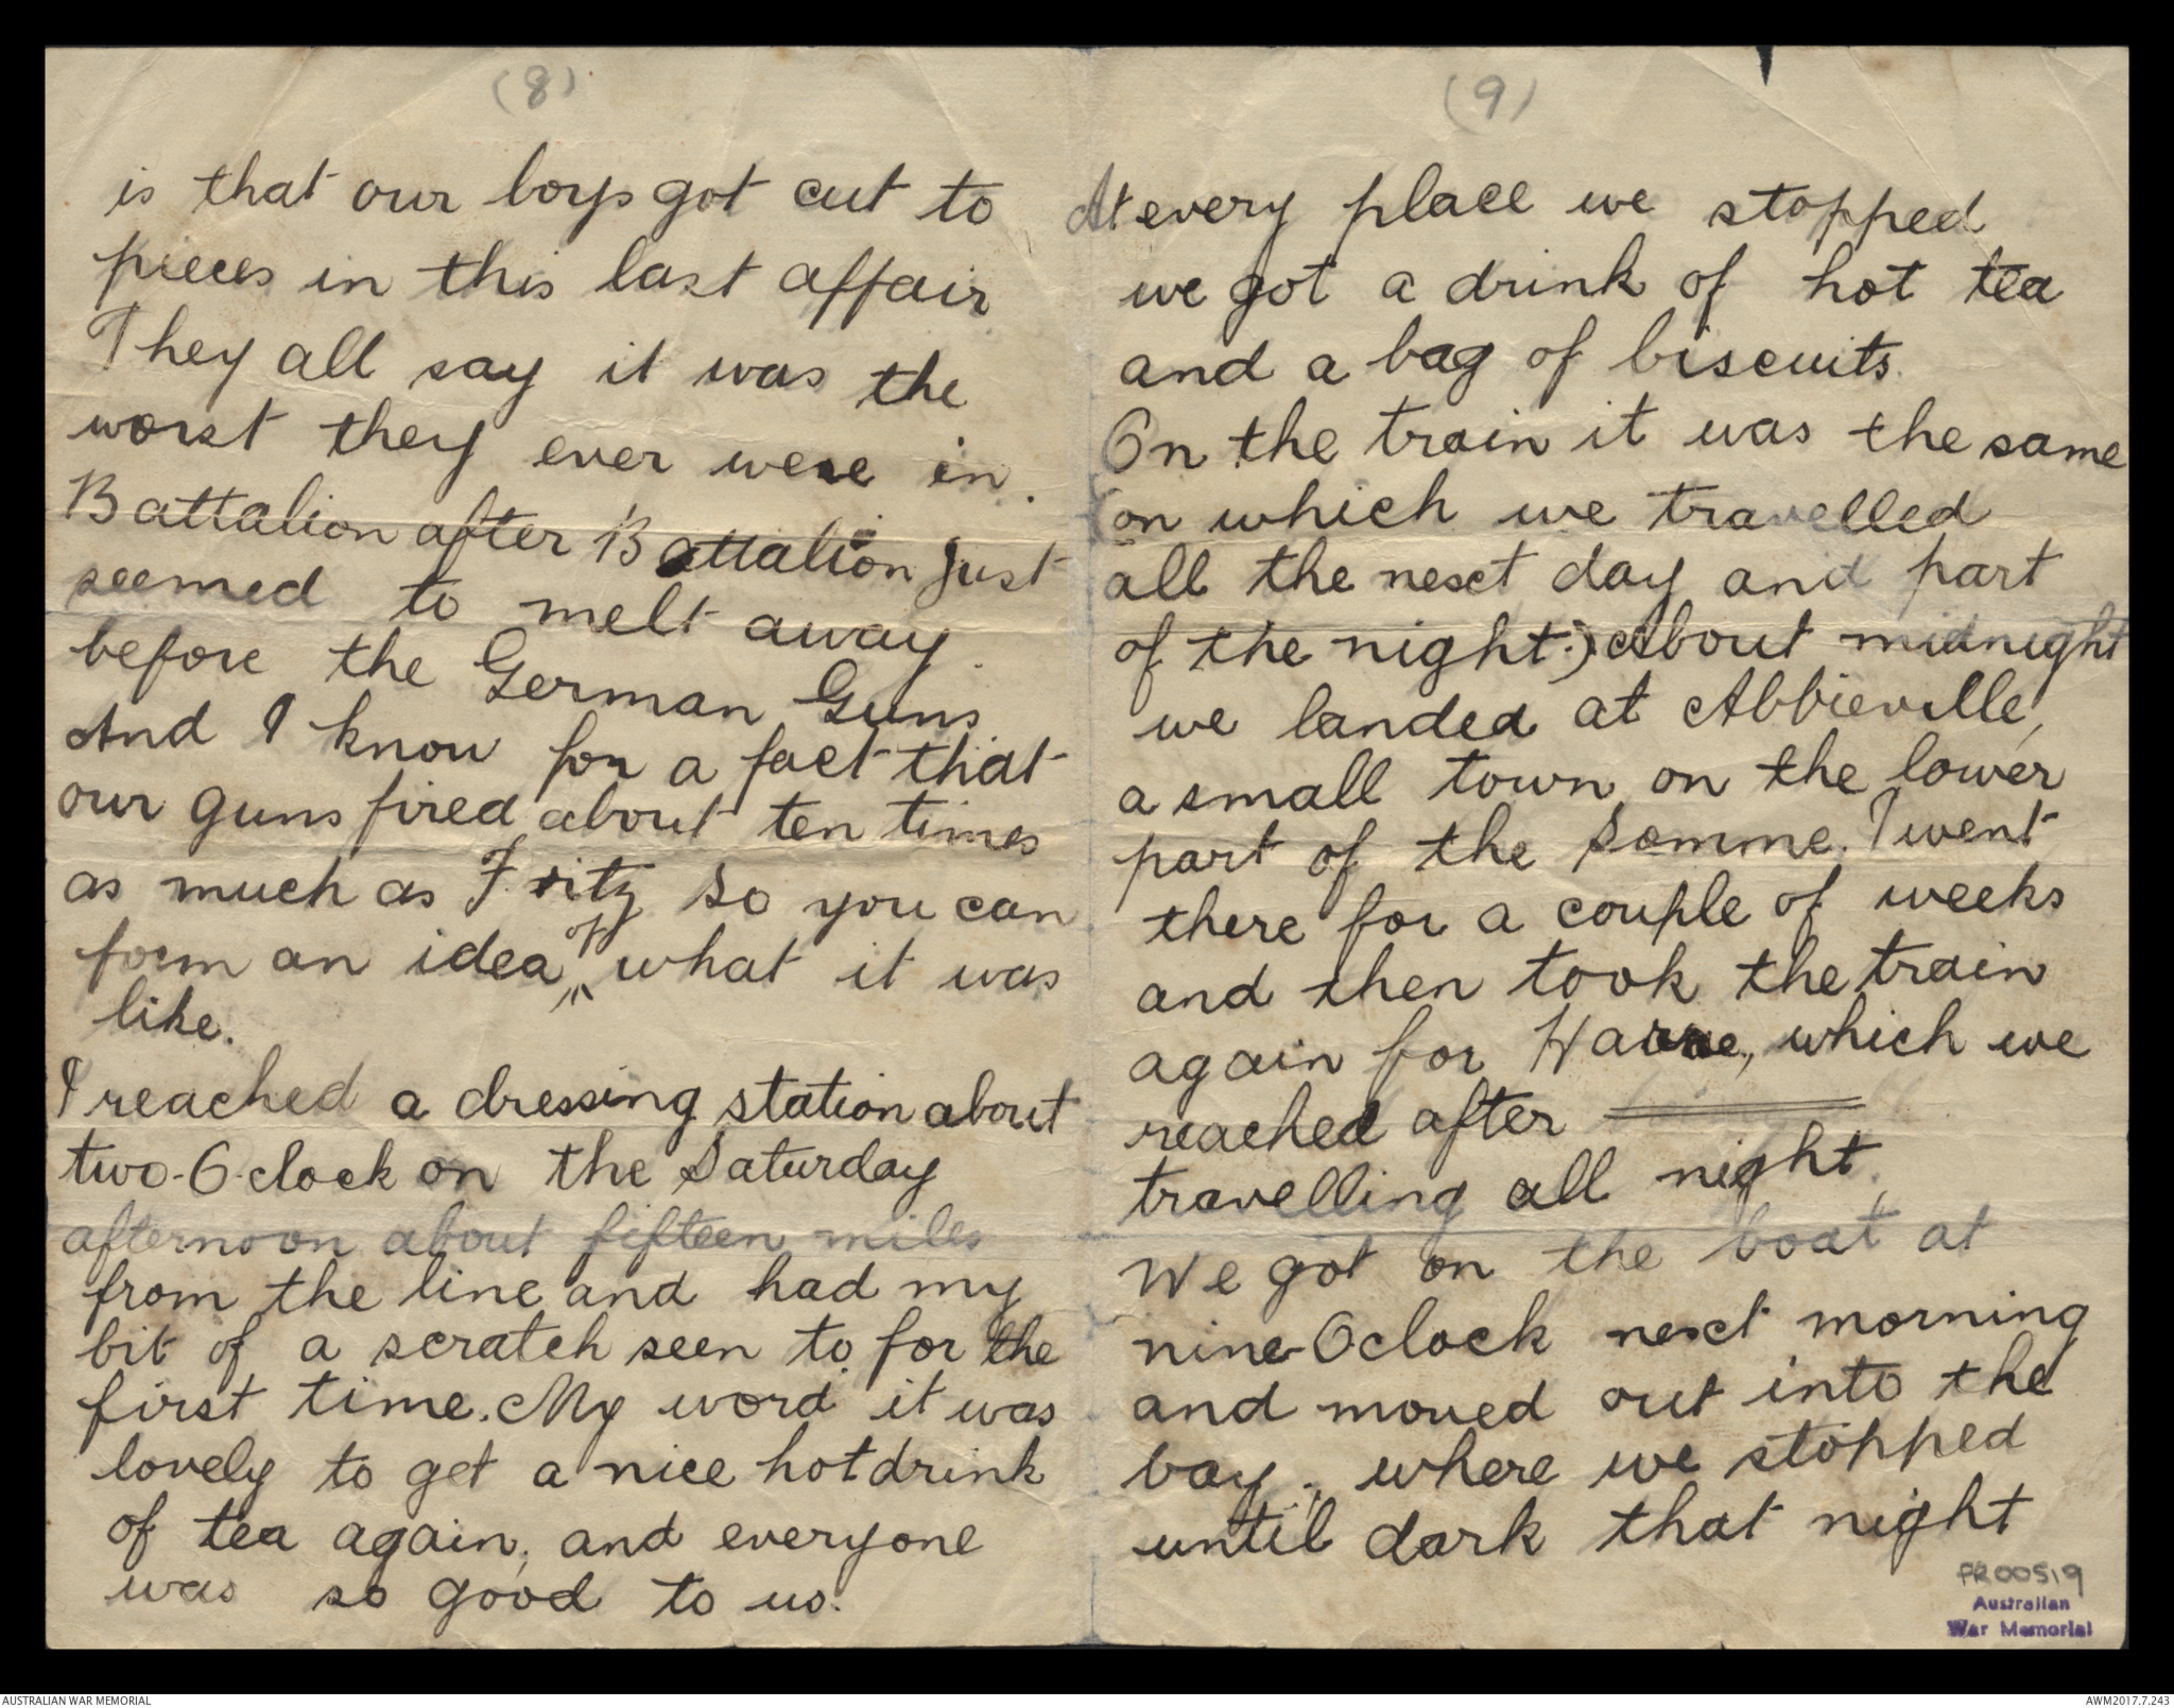 (8)
is that our boys got cut to
pieces in this last affair
They all say it was the
worst they ever were in.
Battalion after Battalion just
seemed to melt away
before the German Guns
And I know for a fact that
our guns fired about ten times
as much as Fritz so you can
form an idea of what it was
like.
I reached a dressing station about
two-O-clock on the Saturday
afternoon about fifteen miles
from the line and had my
bit of a scratch seen to for the
first time. My word it was
lovely to get a nice hot drink
of tea again, and everyone
was so good to us.
(9)
At every place we stopped
we got a drink of hot tea
and a bag of biscuits.
On the train it was the same
(on which we travelled
all the next day and part
of the night.) About midnight
we landed at Abbieville,
a small town on the lower
part of the Somme. I went
there for a couple of weeks
and then took the train
again for which we
reached after
travelling all night.
We got on the boat at
nine-Oclock next morning
and moved out into the
bay, where we stopped
until dark that night
PR00519
Australian
War Memorial
AUSTRALIAN WAR MEMORIAL
AWM2017.7.243